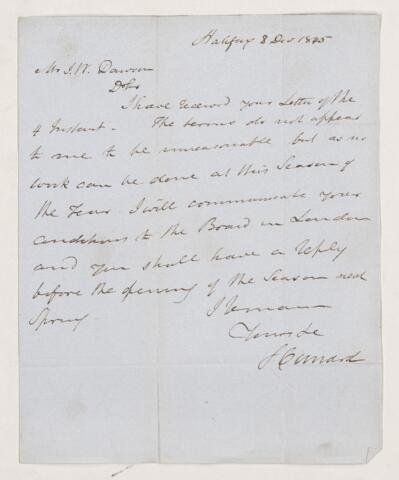 Halifax 8 Dec 1845
Mr J. W. Dawson
I have received your Letter of the
4 Instant. The terms do not appear
to me to be unreasonable but as no
work can be done at this Season of
the Year I will communicate your
conditions to the Board in London
and you shall have a reply
before the opening of the Season next
Spring
I remain
Yours &c
S Cunard